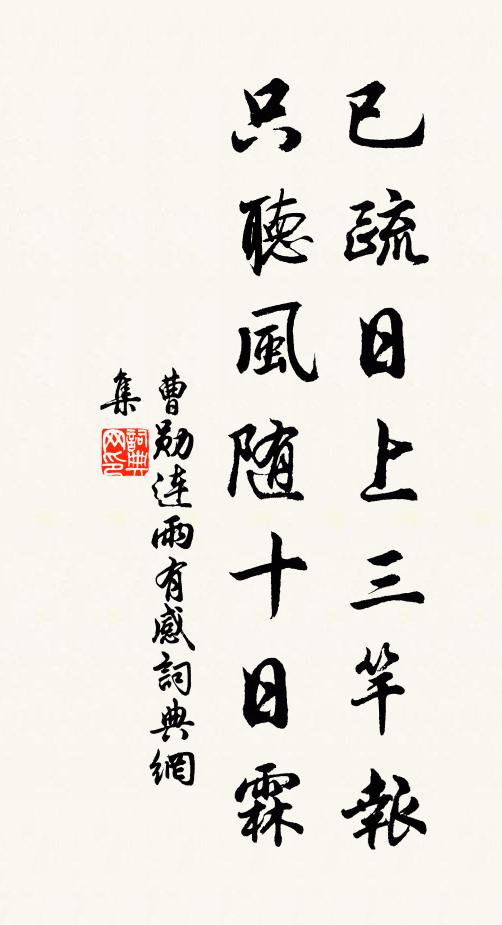 已疏日上三竿報
只聽風随十日霖
曹勛連雨有感詞典網
集
詞典
网印